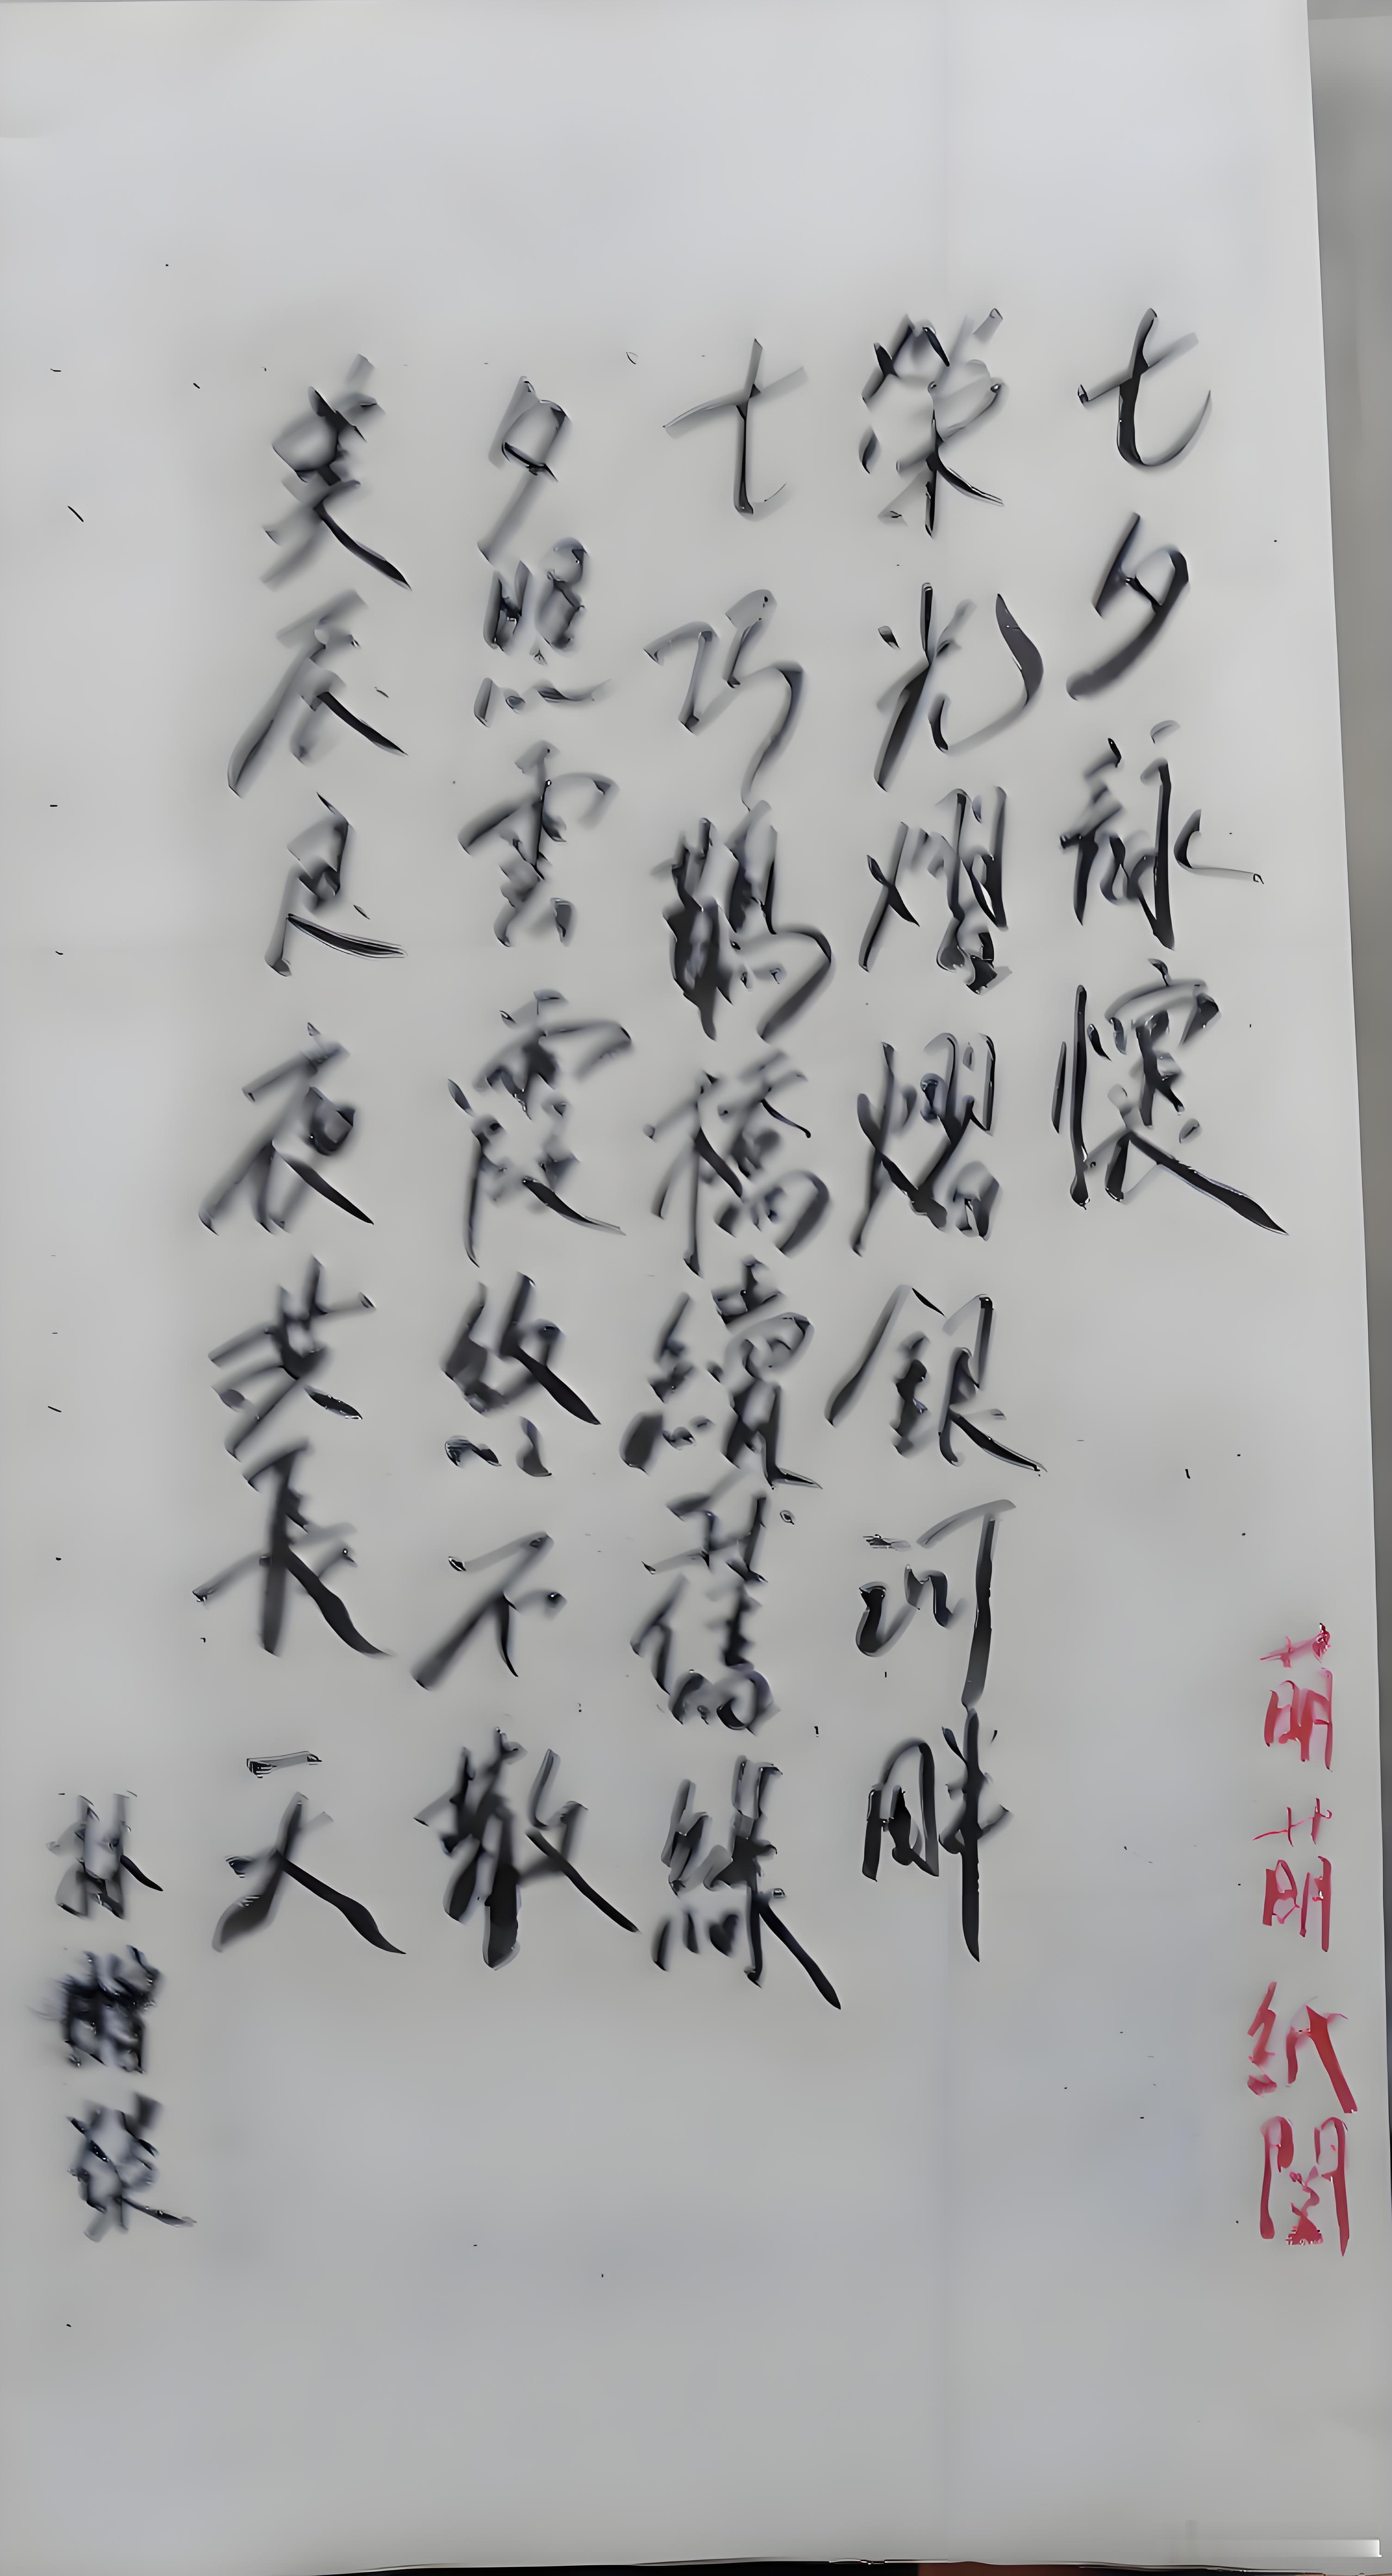 萌萌紙閣
七夕詠懷
榮光燿熠銀河畔
七巧鵲橋續舊緣
夕照雲霞終不散
美辰良夜共長天
林